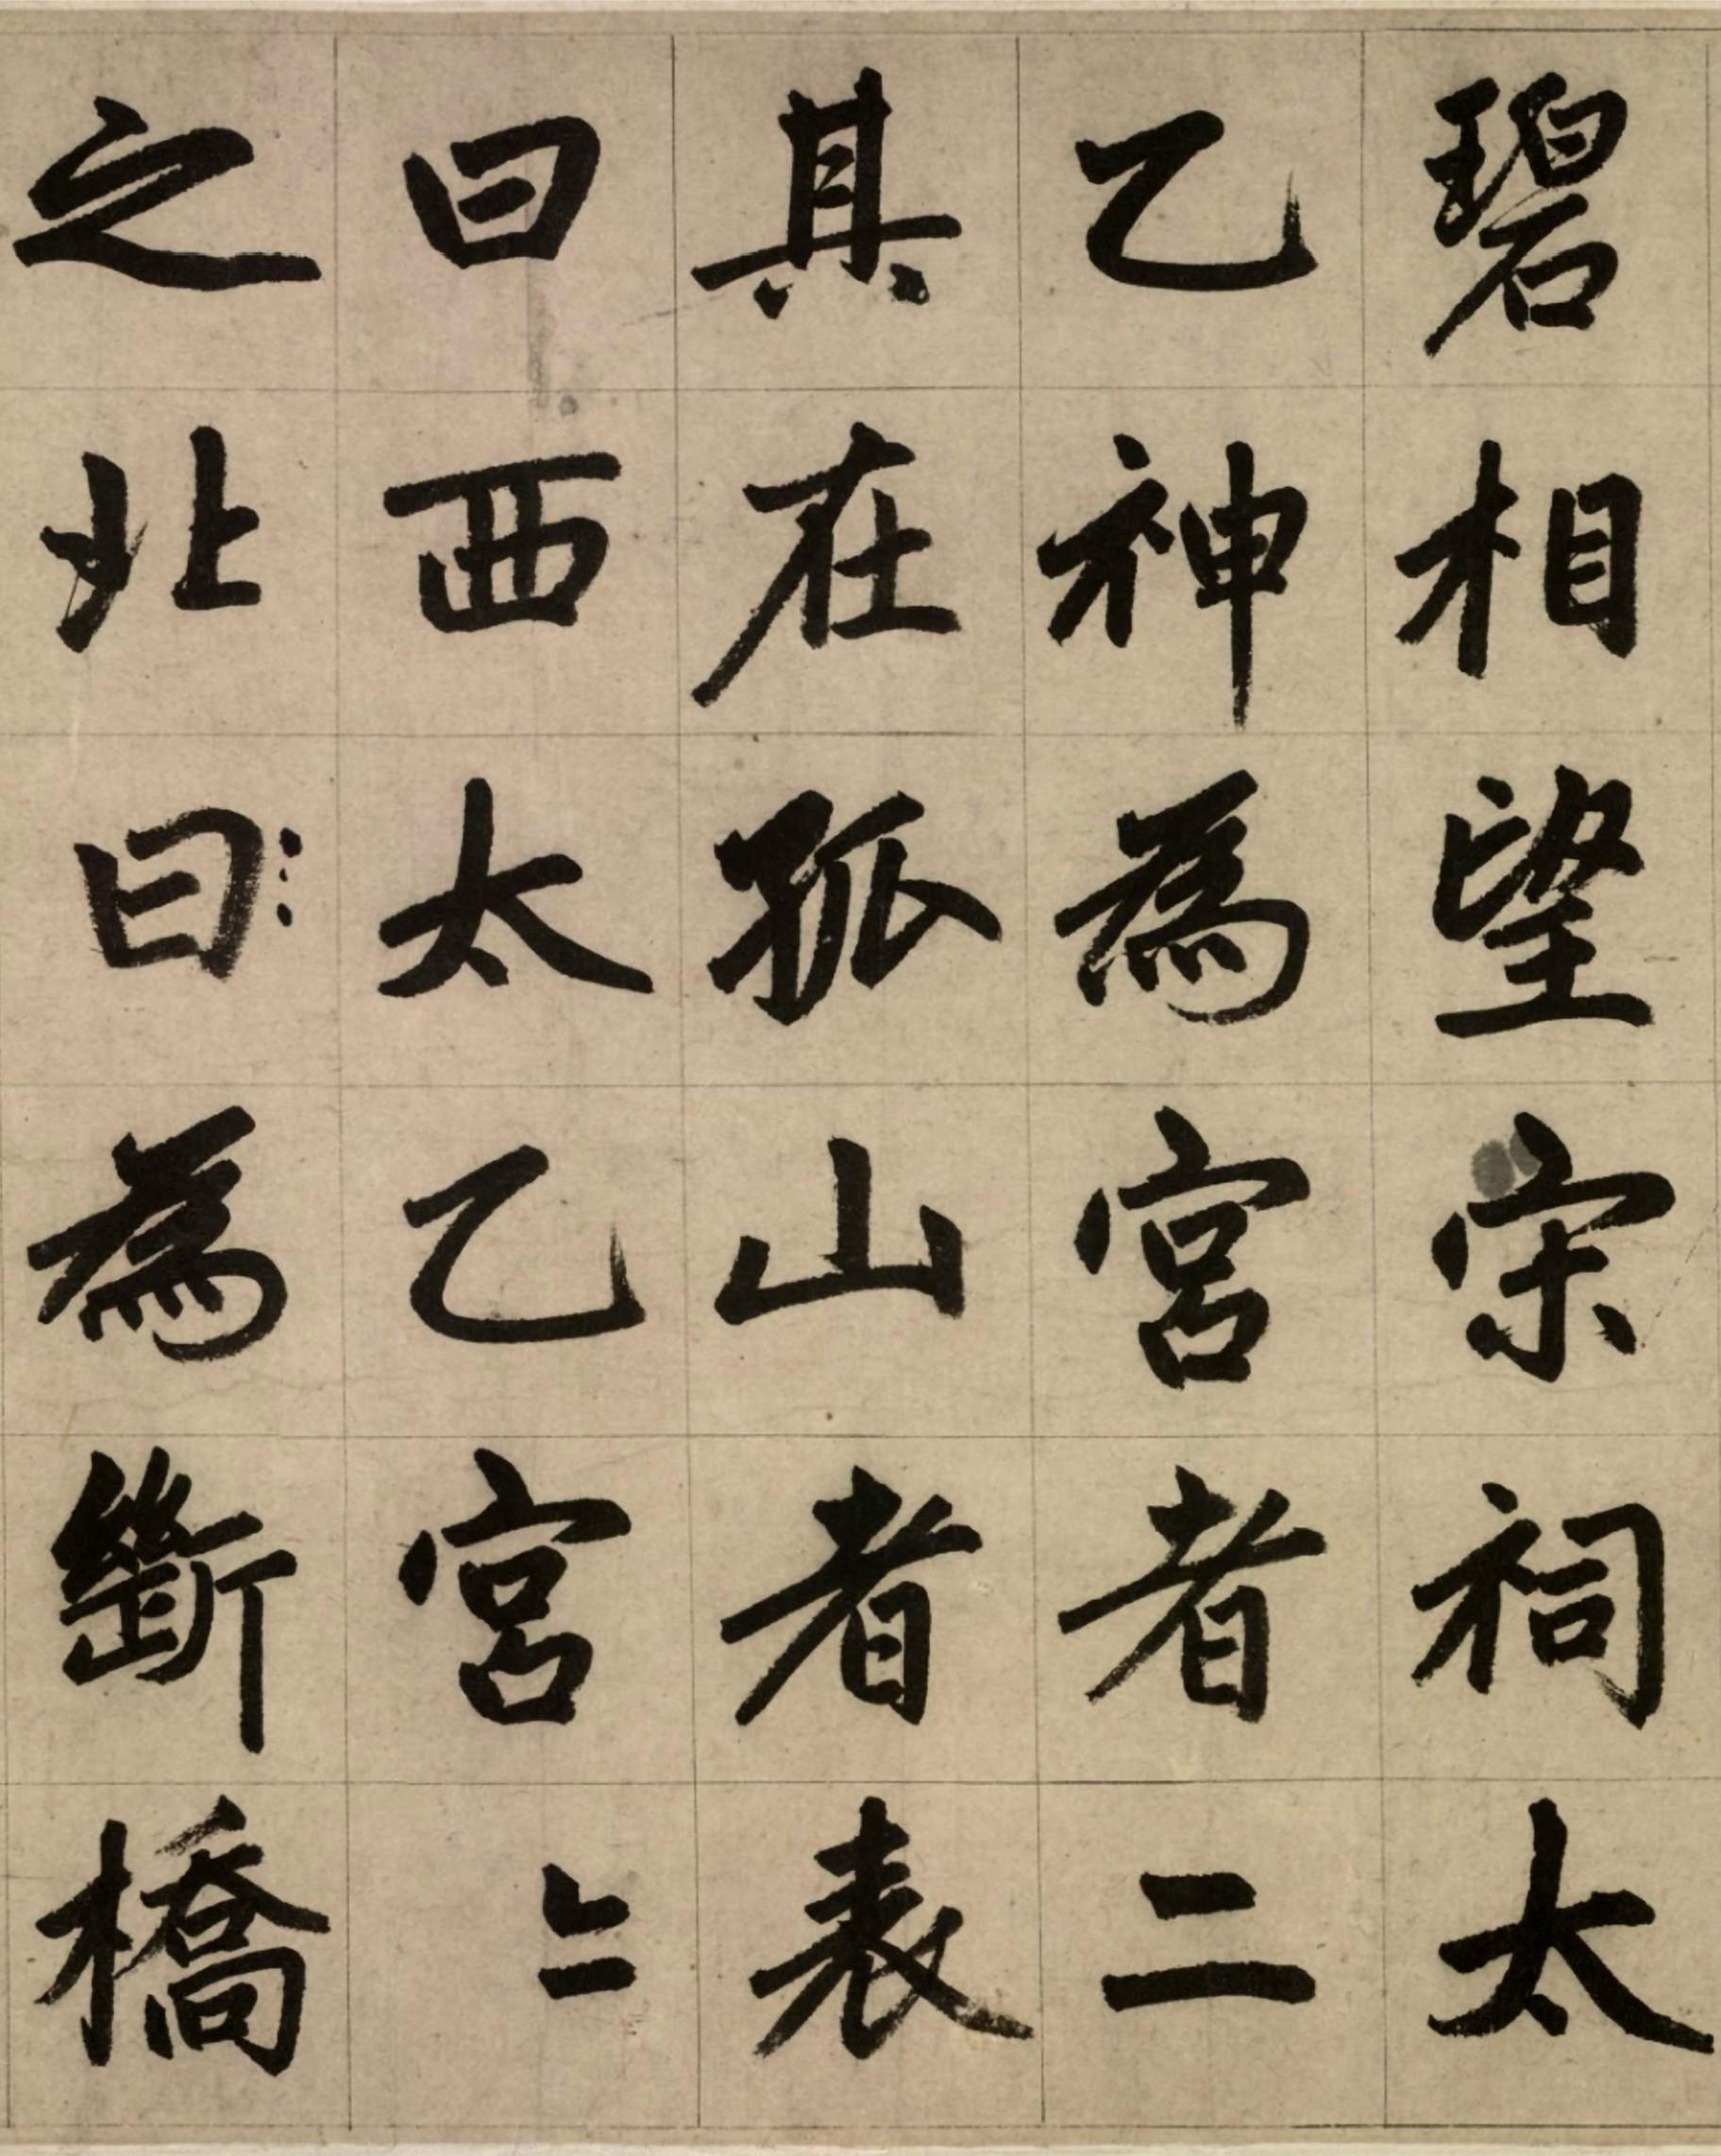 碧相望宋祠太
乙神為宮者二
其在孤山者表
曰西太乙宮〻
之北曰為斷橋